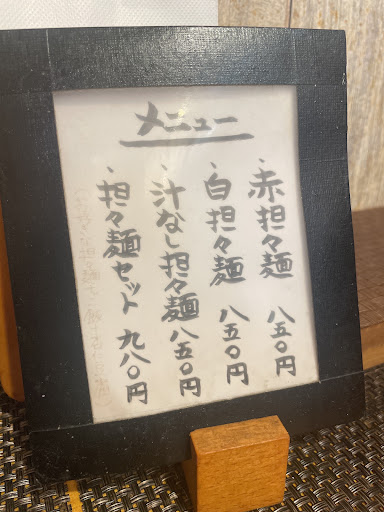 メニュー
、赤担々麺 八五〇円
、白担々麺 八五〇円
、汁なし担々麺 八五〇円
、担々麺セット 九八〇円